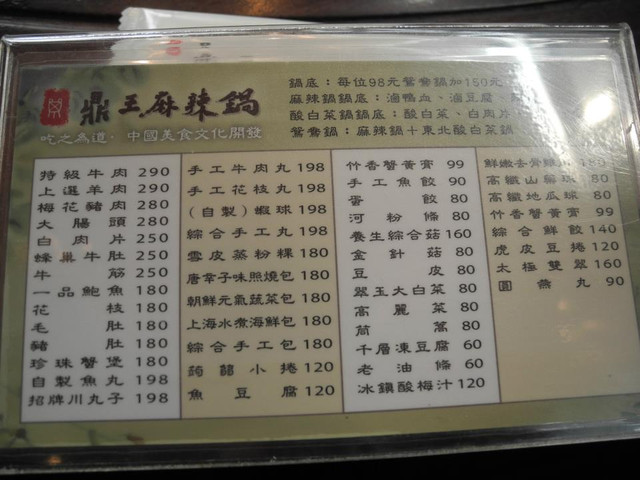 鼎王麻辣鍋
吃之為道．中國美食文化開發
鍋底：每位98元鴛鴦鍋加150元
麻辣鍋鍋底：滷鴨血、滷豆腐、
酸白菜鍋鍋底：酸白菜、白肉片
鴛鴦鍋：麻辣鍋＋東北酸白菜鍋
特級牛肉 290
上選羊肉 290
梅花豬肉 280
大腸頭 280
白肉片 250
蜂巢牛肚 250
牛筋 250
一品鮑魚 180
花枝 180
毛肚 180
豬肚 180
珍珠蟹堡 180
自製魚丸 198
招牌川丸子 198
手工牛肉丸 198
手工花枝丸 198
（自製）蝦球 198
綜合手工丸 198
雪皮蒸粉粿 180
唐辛子味照燒包 180
朝鮮元氣蔬菜包 180
上海水煮海鮮包 180
綜合手工包 180
蒟蒻小捲 120
魚豆腐 120
竹香蟹黃膏 99
手工魚餃 90
蛋餃 80
河粉條 80
養生綜合菇 160
金針菇 80
豆皮 80
翠玉大白菜 80
高麗菜 80
茼蒿 80
千層凍豆腐 60
老油條 60
冰鎮酸梅汁 120
鮮嫩去骨雞 180
高纖山藥球 80
高纖地瓜球 80
竹香蟹黃膏 99
綜合鮮餃 140
虎皮豆捲 120
太極雙翠 160
圓燕丸 90